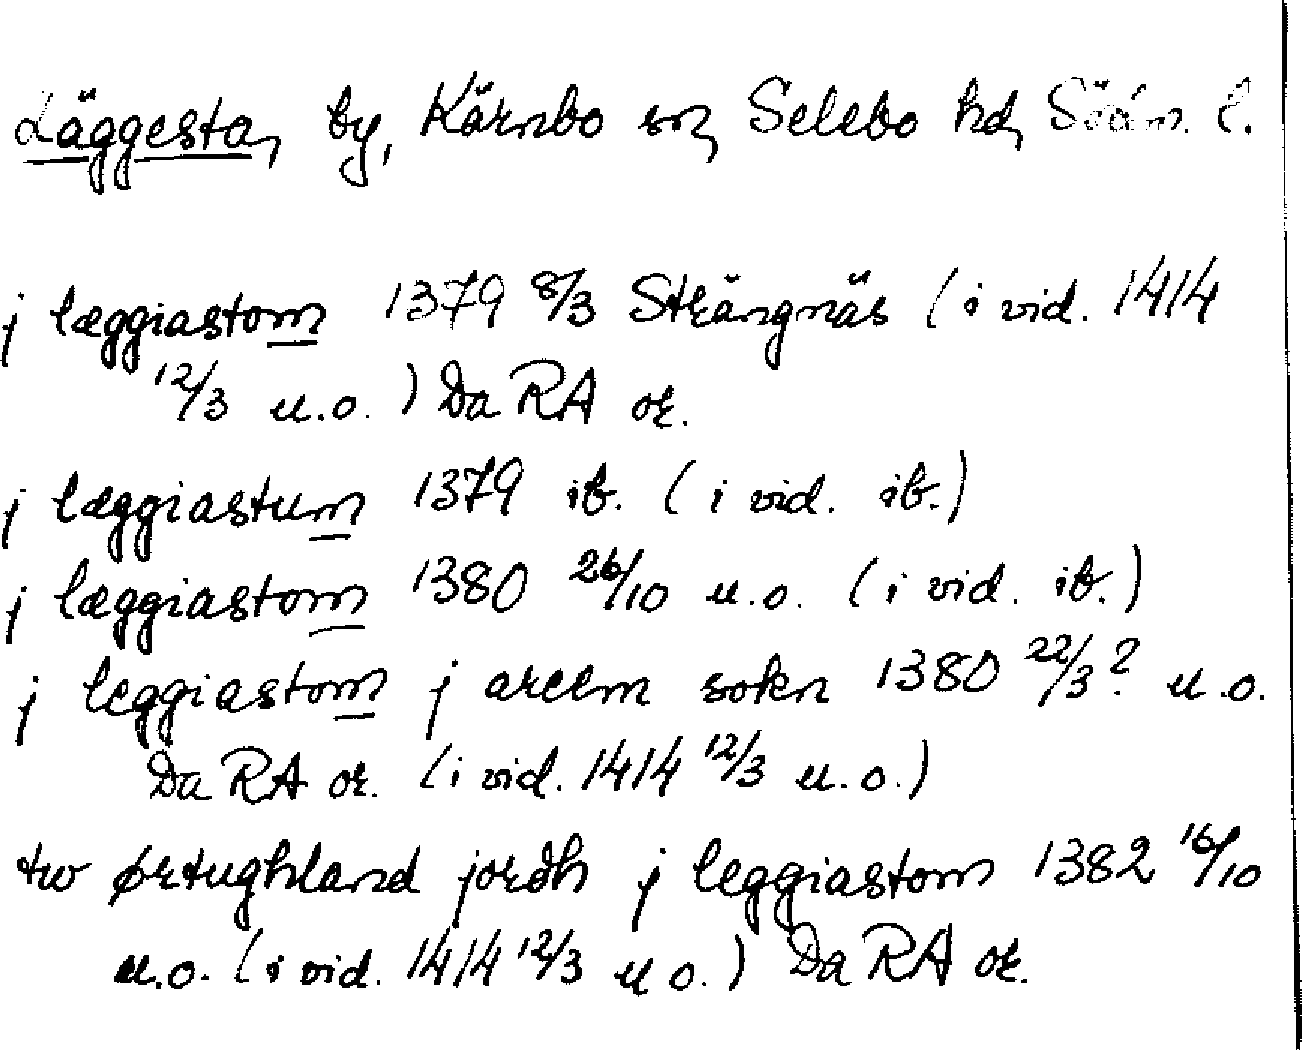 Läggesta, by, Kärnbo sn, Selebo hd, Södm. l.
j læggiastom 1379 8/3 Strängnäs (i vid. 1414
12/3 u.o.) Da RA or.
j læggiastum 1379 ib. (i vid. ib.)
j læggiastom 1380 26/10 u.o. (i vid. ib.)
j leggiastom j arem sokn 1380 22/3? u.o.
Da RA or. (i vid. 1414 12/3 u.o.)
tw ørtughland jordh j leggiastom 1382 16/10
u.o. (i vid. 1414 12/3 u o.) Da RA or.